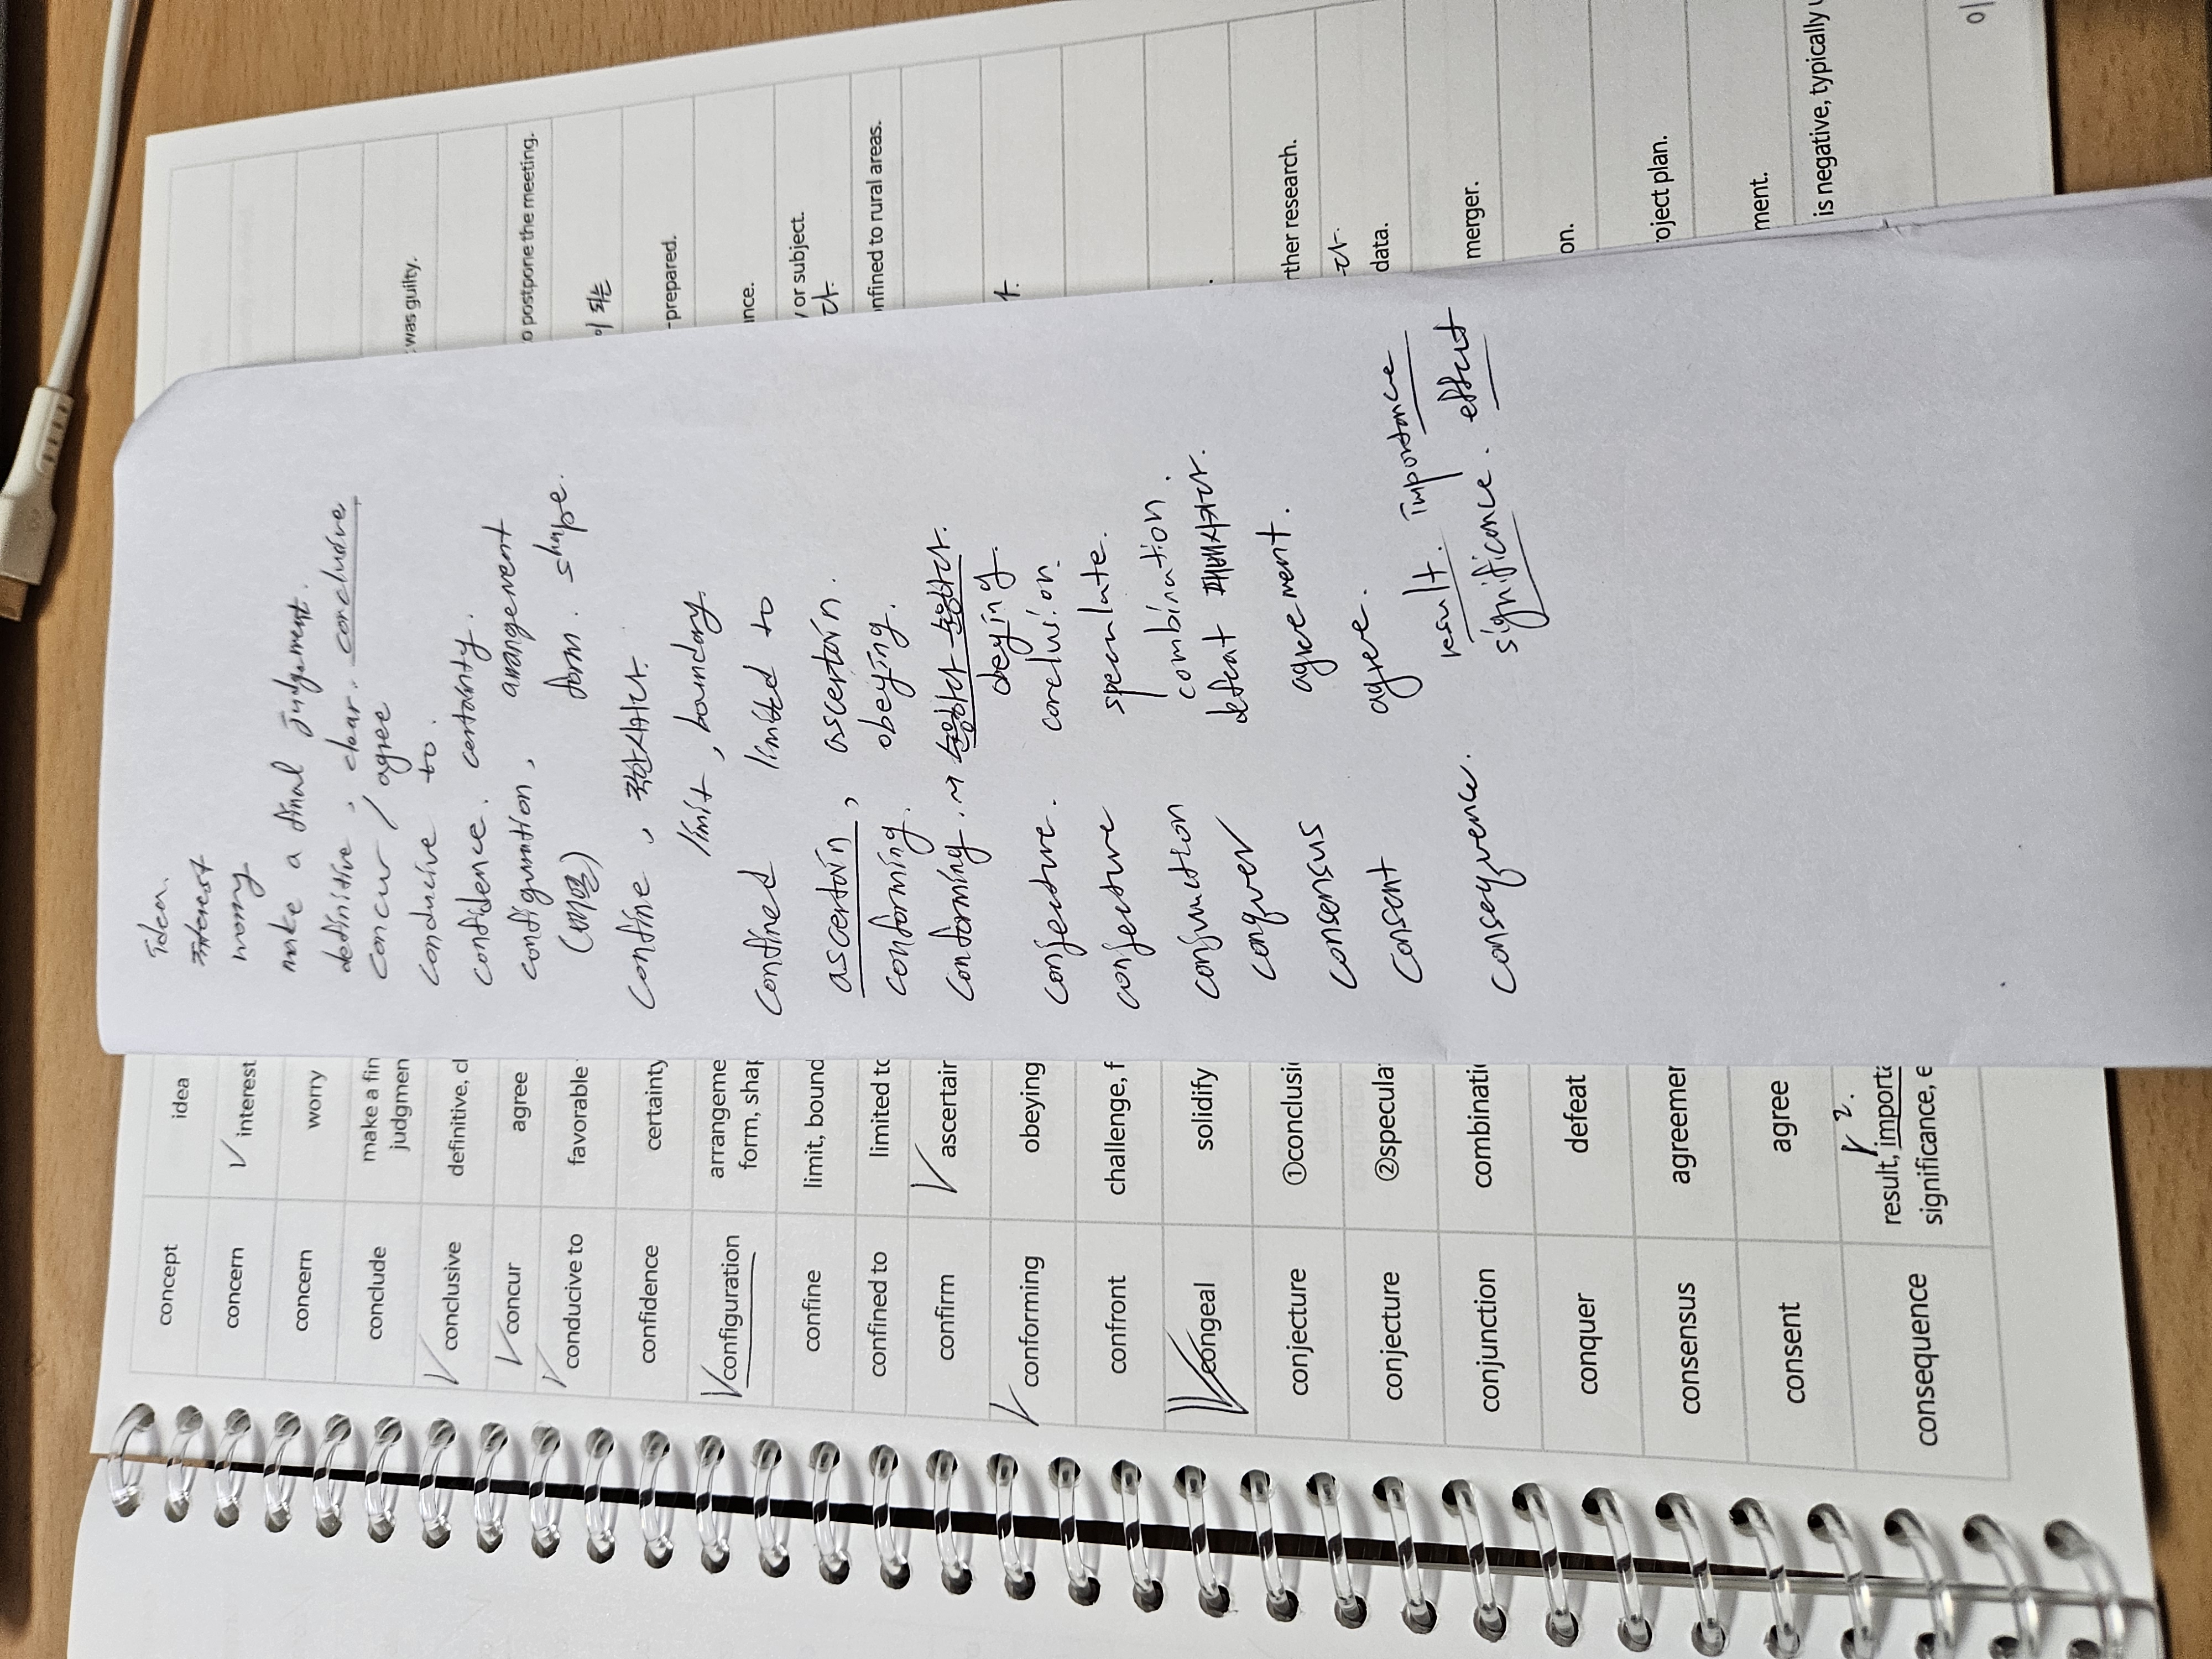 concept idea
concern interest
concern worry
conclude make a fin
judgmen
conclusive definitive, cl
concur agree
conducive to favorable
confidence certainty
configuration arrangeme
form, shap
confine limit, bound
confined to limited to
confirm ascertain
conforming obeying
confront challenge, f
congeal solidify
conjecture ①conclusi
conjecture ②specula
conjunction combinati
conquer defeat
consensus agreemen
consent agree
2.
consequence result, importa
significance, e
idea.
interest
worry
make a final judgment.
definitive, clear. conclusive
concur / agree
conducive to.
confidence. certainty.
configuration, arrangement
(배열) form. shape.
confine, 국한시키다.
limit, boundary.
confined limited to
ascertain, ascertain.
conforming. obeying.
conforming. → 순응하다 순응하다.
obeying.
conjecture. conclusion.
conjecture speculate.
conjunction combination.
conquer defeat 패배시키다.
consensus agreement.
consent agree.
consequence. result. importance
significance. effect
was guilty.
o postpone the meeting.
이 되는
-prepared.
nce.
y or subject.
다.
nfined to rural areas.
rther research.
다.
data.
merger.
on.
roject plan.
ment.
is negative, typically
이